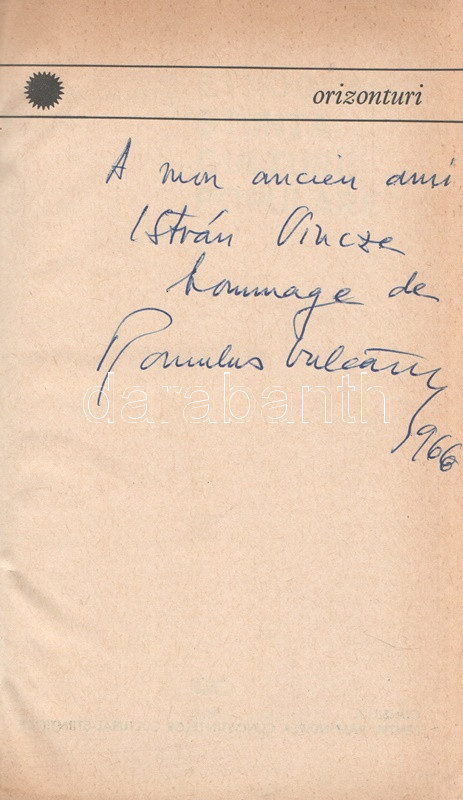 orizonturi
A mon ancien ami
István Vincze
hommage de
Romulus Vulcănescu
darabanth
1966